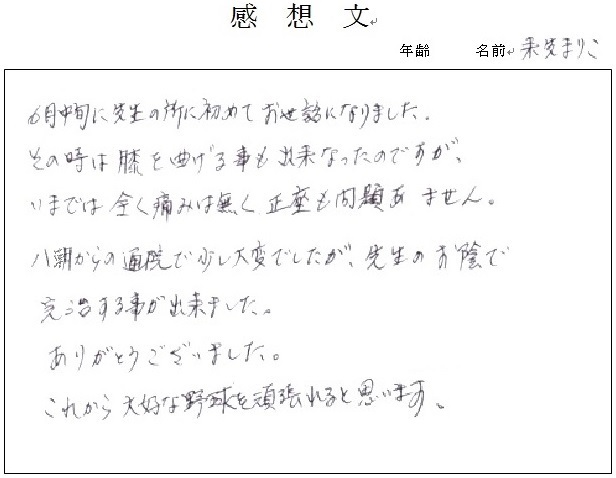 感想文
年齢 名前 まりこ
6月中旬に先生の所に初めてお世話になりました。
その時は膝を曲げる事も出来なったのですが、
いまでは全く痛みは無く正座も問題ありません。
八朝からの通院で少し大変でしたが、先生のお陰で
完治する事が出来ました。
ありがとうございました。
これから大好な野球を頑張れると思います。